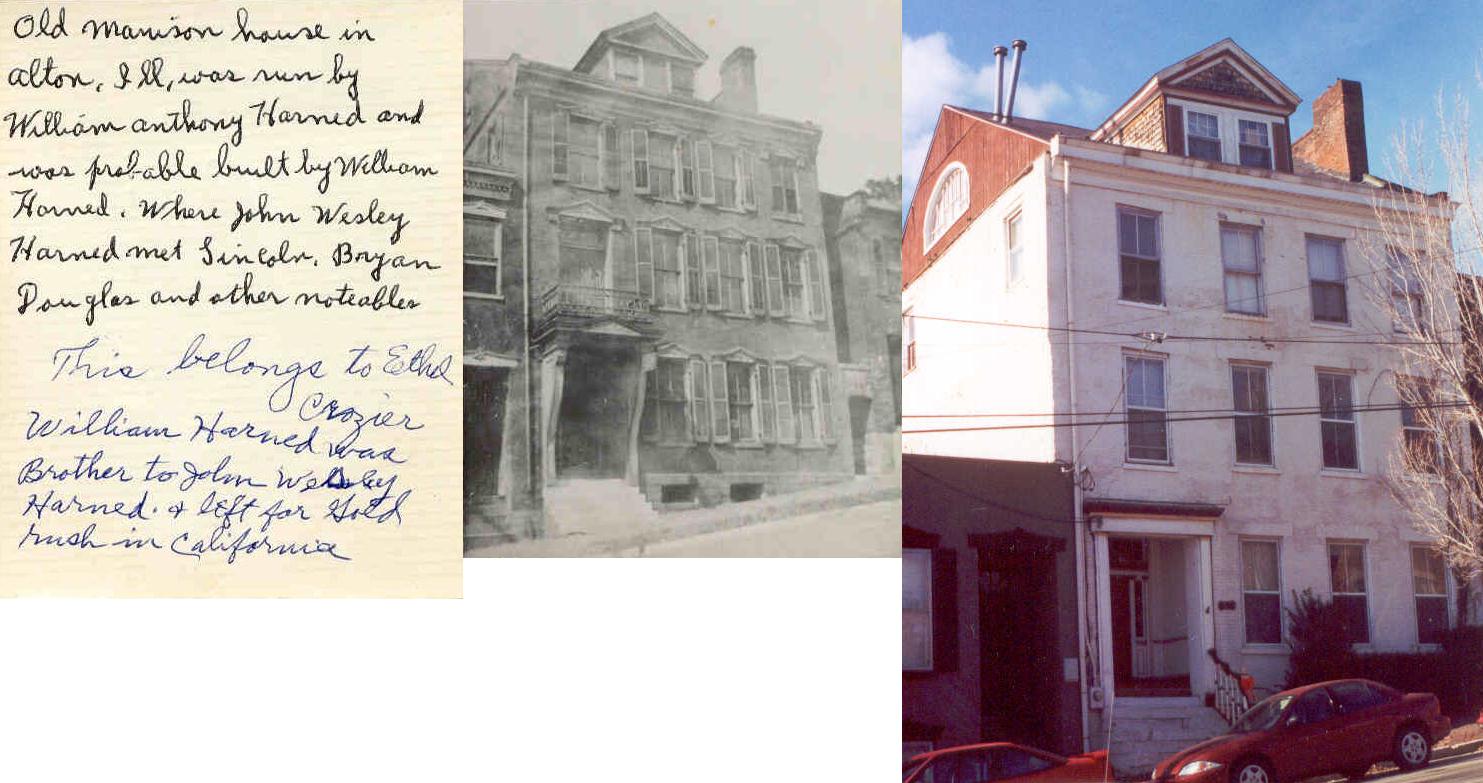 Old Manison house in
Alton, Ill, was run by
William Anthony Harned and
was probable built by William
Harned. Where John Wesley
Harned met Lincoln, Bryan
Douglas and other noteables
This belongs to Ethel
Crozier
William Harned was
Brother to John Wesley
Harned. & left for Gold
rush in California